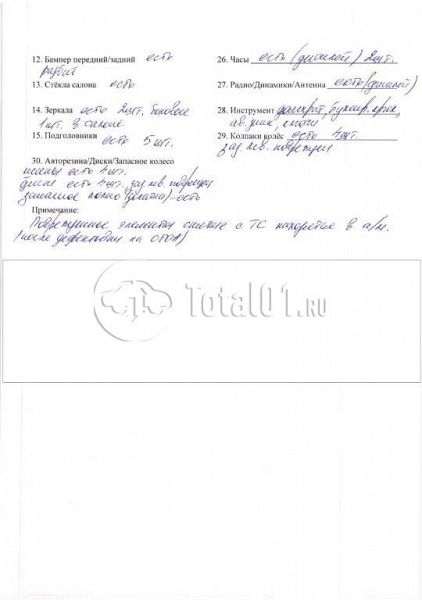 12. Бампер передний/задний есть
разбит
13. Стёкла салона есть
14. Зеркала есть 2шт. боковое
1шт. в салоне
15. Подголовники есть 5 шт.
26. Часы есть (дисплей) 2шт.
27. Радио/Динамики/Антенна есть (дисплей)
28. Инструмент домкрат, буксир. крюк,
ав. знак, ключи
29. Колпаки колес есть 4шт.
зад. лев. поврежден
30. Авторезина/Диски/Запасное колесо
шины есть 4 шт.
диски есть 4 шт. зад. лев. поврежден
запасное колесо (докатка) - есть
Примечание:
Поврежденные элементы снятые с ТС находятся в а/м.
(после дефектовки на СТОА)
Total01.RU